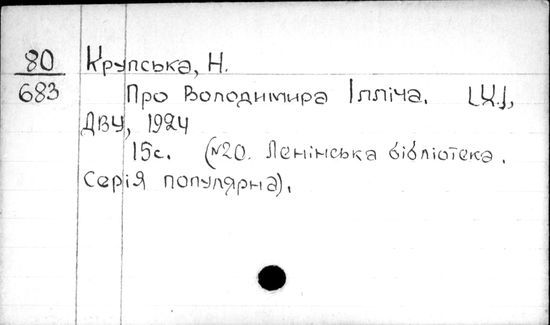 80
683
Крупська, Н.
Про Володимира Ілліча. [Х.],
ДВУ, 1924
15с. (№20. Ленінська бібліотека.
Серія популярна).